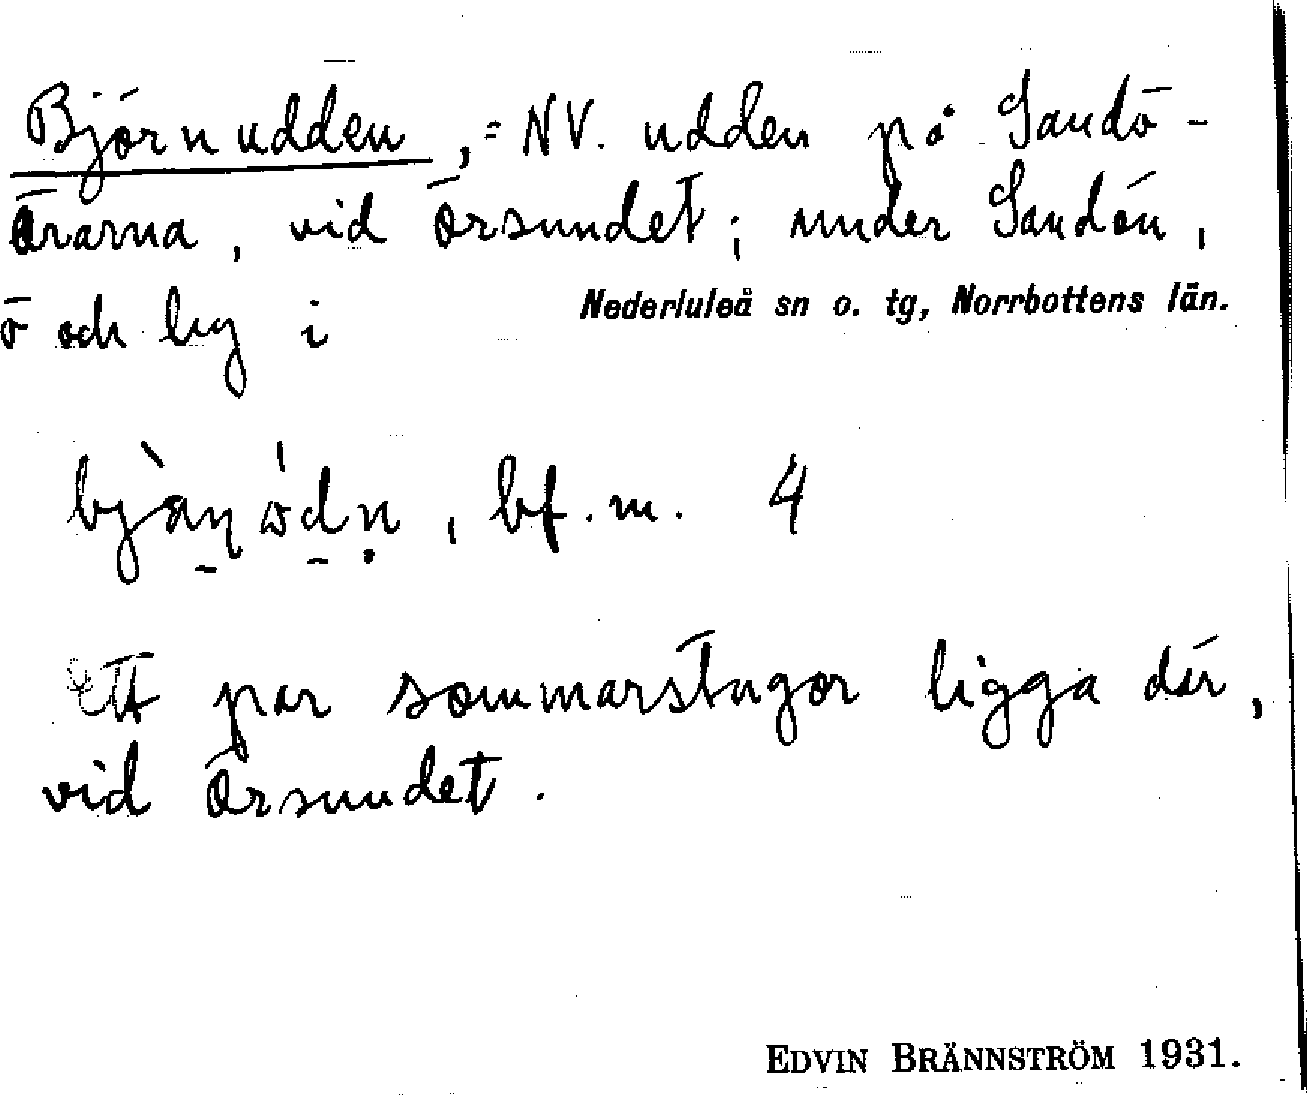 Björnudden, = NV. udden på Sandö-
örarna, vid Örsundet; under Sandön,
ö och by i Nederluleå sn o. tg, Norrbottens län.
bjὰn̠ ὠd̠n̥, bf. m. 4
Ett par sommarstugor ligga där,
vid Örsundet.
EDVIN BRÄNNSTRÖM 1931.